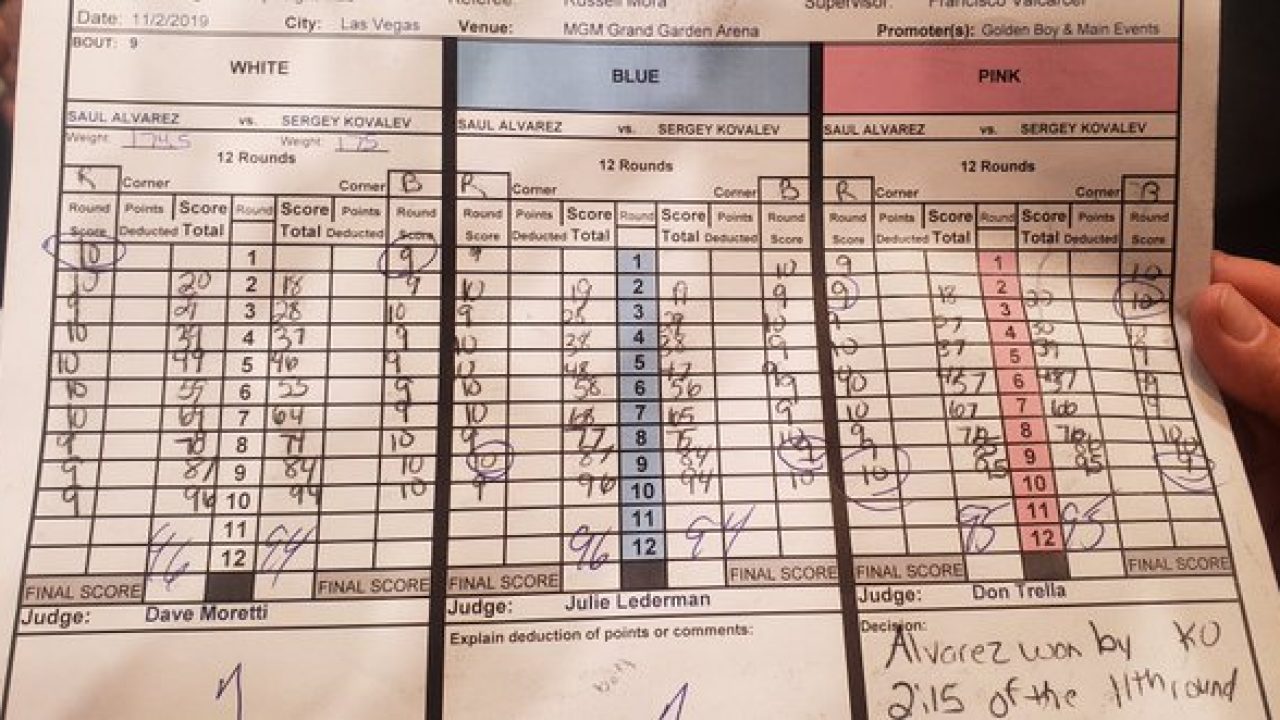 Referee: Russell Mora Supervisor: Francisco Valcarcel
Date: 11/2/2019 City: Las Vegas Venue: MGM Grand Garden Arena Promoter(s): Golden Boy & Main Events
BOUT: 9
WHITE BLUE PINK
SAUL ALVAREZ vs. SERGEY KOVALEV SAUL ALVAREZ vs. SERGEY KOVALEV SAUL ALVAREZ vs. SERGEY KOVALEV
Weight: 174.5 Weight: 175
12 Rounds 12 Rounds 12 Rounds
R Corner Corner B R Corner Corner B R Corner Corner B
Round Points Score Round Score Points Round Round Points Score Round Score Points Round Round Points Score Round Score Points Round
Score Deducted Total Total Deducted Score Score Deducted Total Total Deducted Score Score Deducted Total Total Deducted Score
10 1 9 9 1 10 9 1 10
10 20 2 18 9 10 19 2 19 9 9 18 2 20 10
9 3 28 10 9 3 10 9 3
10 4 37 9 10 38 4 38 9 10 37 4 39 9
10 49 5 46 9 10 48 5 47 9 5
10 59 6 55 9 10 58 6 56 9 10 57 6 57 9
10 69 7 64 9 10 68 7 65 9 10 67 7 66 9
9 78 8 74 10 9 77 8 75 10 9 8 10
9 87 9 84 10 10 87 9 84 9 9 9
9 96 10 94 10 9 96 10 94 10 10 95 10 95 9
11 11 11
96 12 94 96 12 94 95 12 95
FINAL SCORE FINAL SCORE FINAL SCORE FINAL SCORE FINAL SCORE FINAL SCORE
Judge: Dave Moretti Judge: Julie Lederman Judge: Don Trella
Explain deduction of points or comments: Decision:
Alvarez won by KO
2:15 of the 11th round